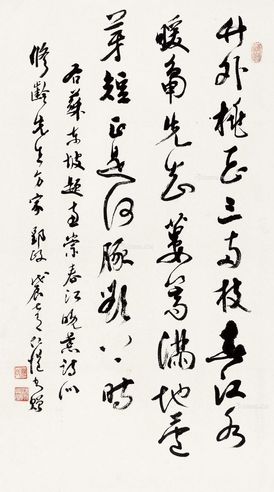 竹外桃花三两枝春江水
暖鸭先知蒌蒿满地芦
芽短正是河豚欲上时
右苏东坡题惠崇春江晓景诗以
修龄先生方家郢政 戊辰 仁恺书赠